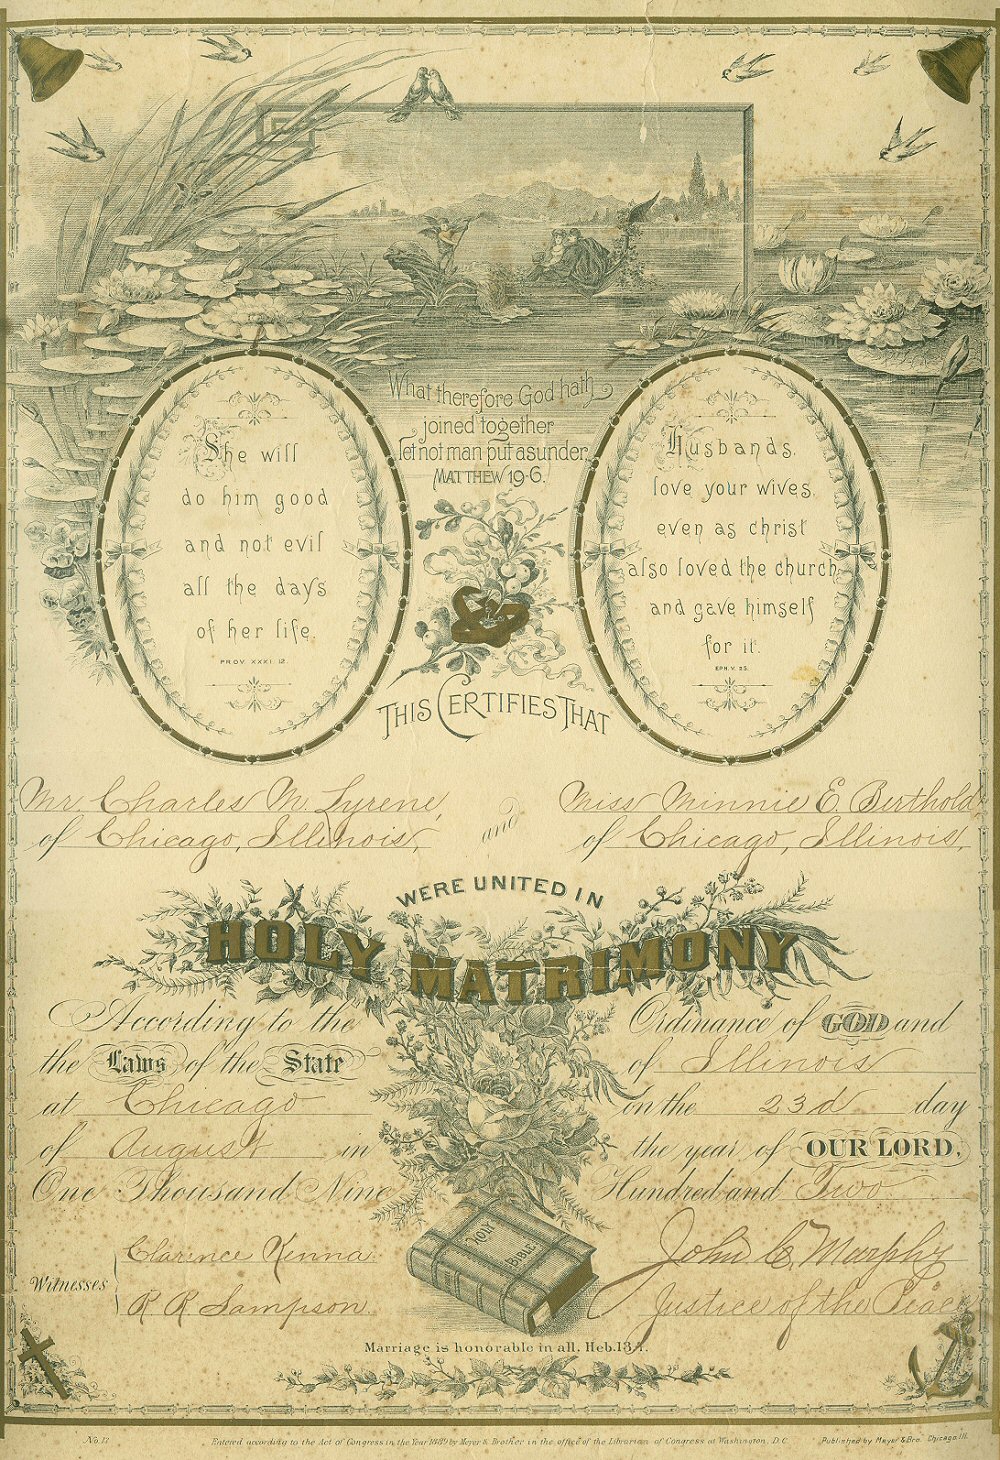 What therefore God hath
joined together
let not man put asunder.
MATTHEW 19-6.
She will
do him good
and not evil
all the days
of her life.
PROV. XXXI. 12.
Husbands,
love your wives,
even as christ
also loved the church
and gave himself
for it.
EPH. V. 25.
THIS CERTIFIES THAT
Mr. Charles M. Lyrene, and Miss Minnie E. Berthold
of Chicago, Illinois, of Chicago, Illinois,
WERE UNITED IN
HOLY MATRIMONY
According to the Ordinance of GOD and
the Laws of the State of Illinois
at Chicago on the 23d day
of August in the year of OUR LORD,
One Thousand Nine Hundred and Two
HOLY BIBLE
Witnesses
Clarence Kenna.
R R Sampson.
John C. Murphy
Justice of the Peace
Marriage is honorable in all. Heb. 13,4.
No. 17
Entered according to the Act of Congress in the Year 1889 by Meyer & Brother in the office of the Librarian of Congress at Washington, D.C.
Published by Meyer & Bro. Chicago. Ill.